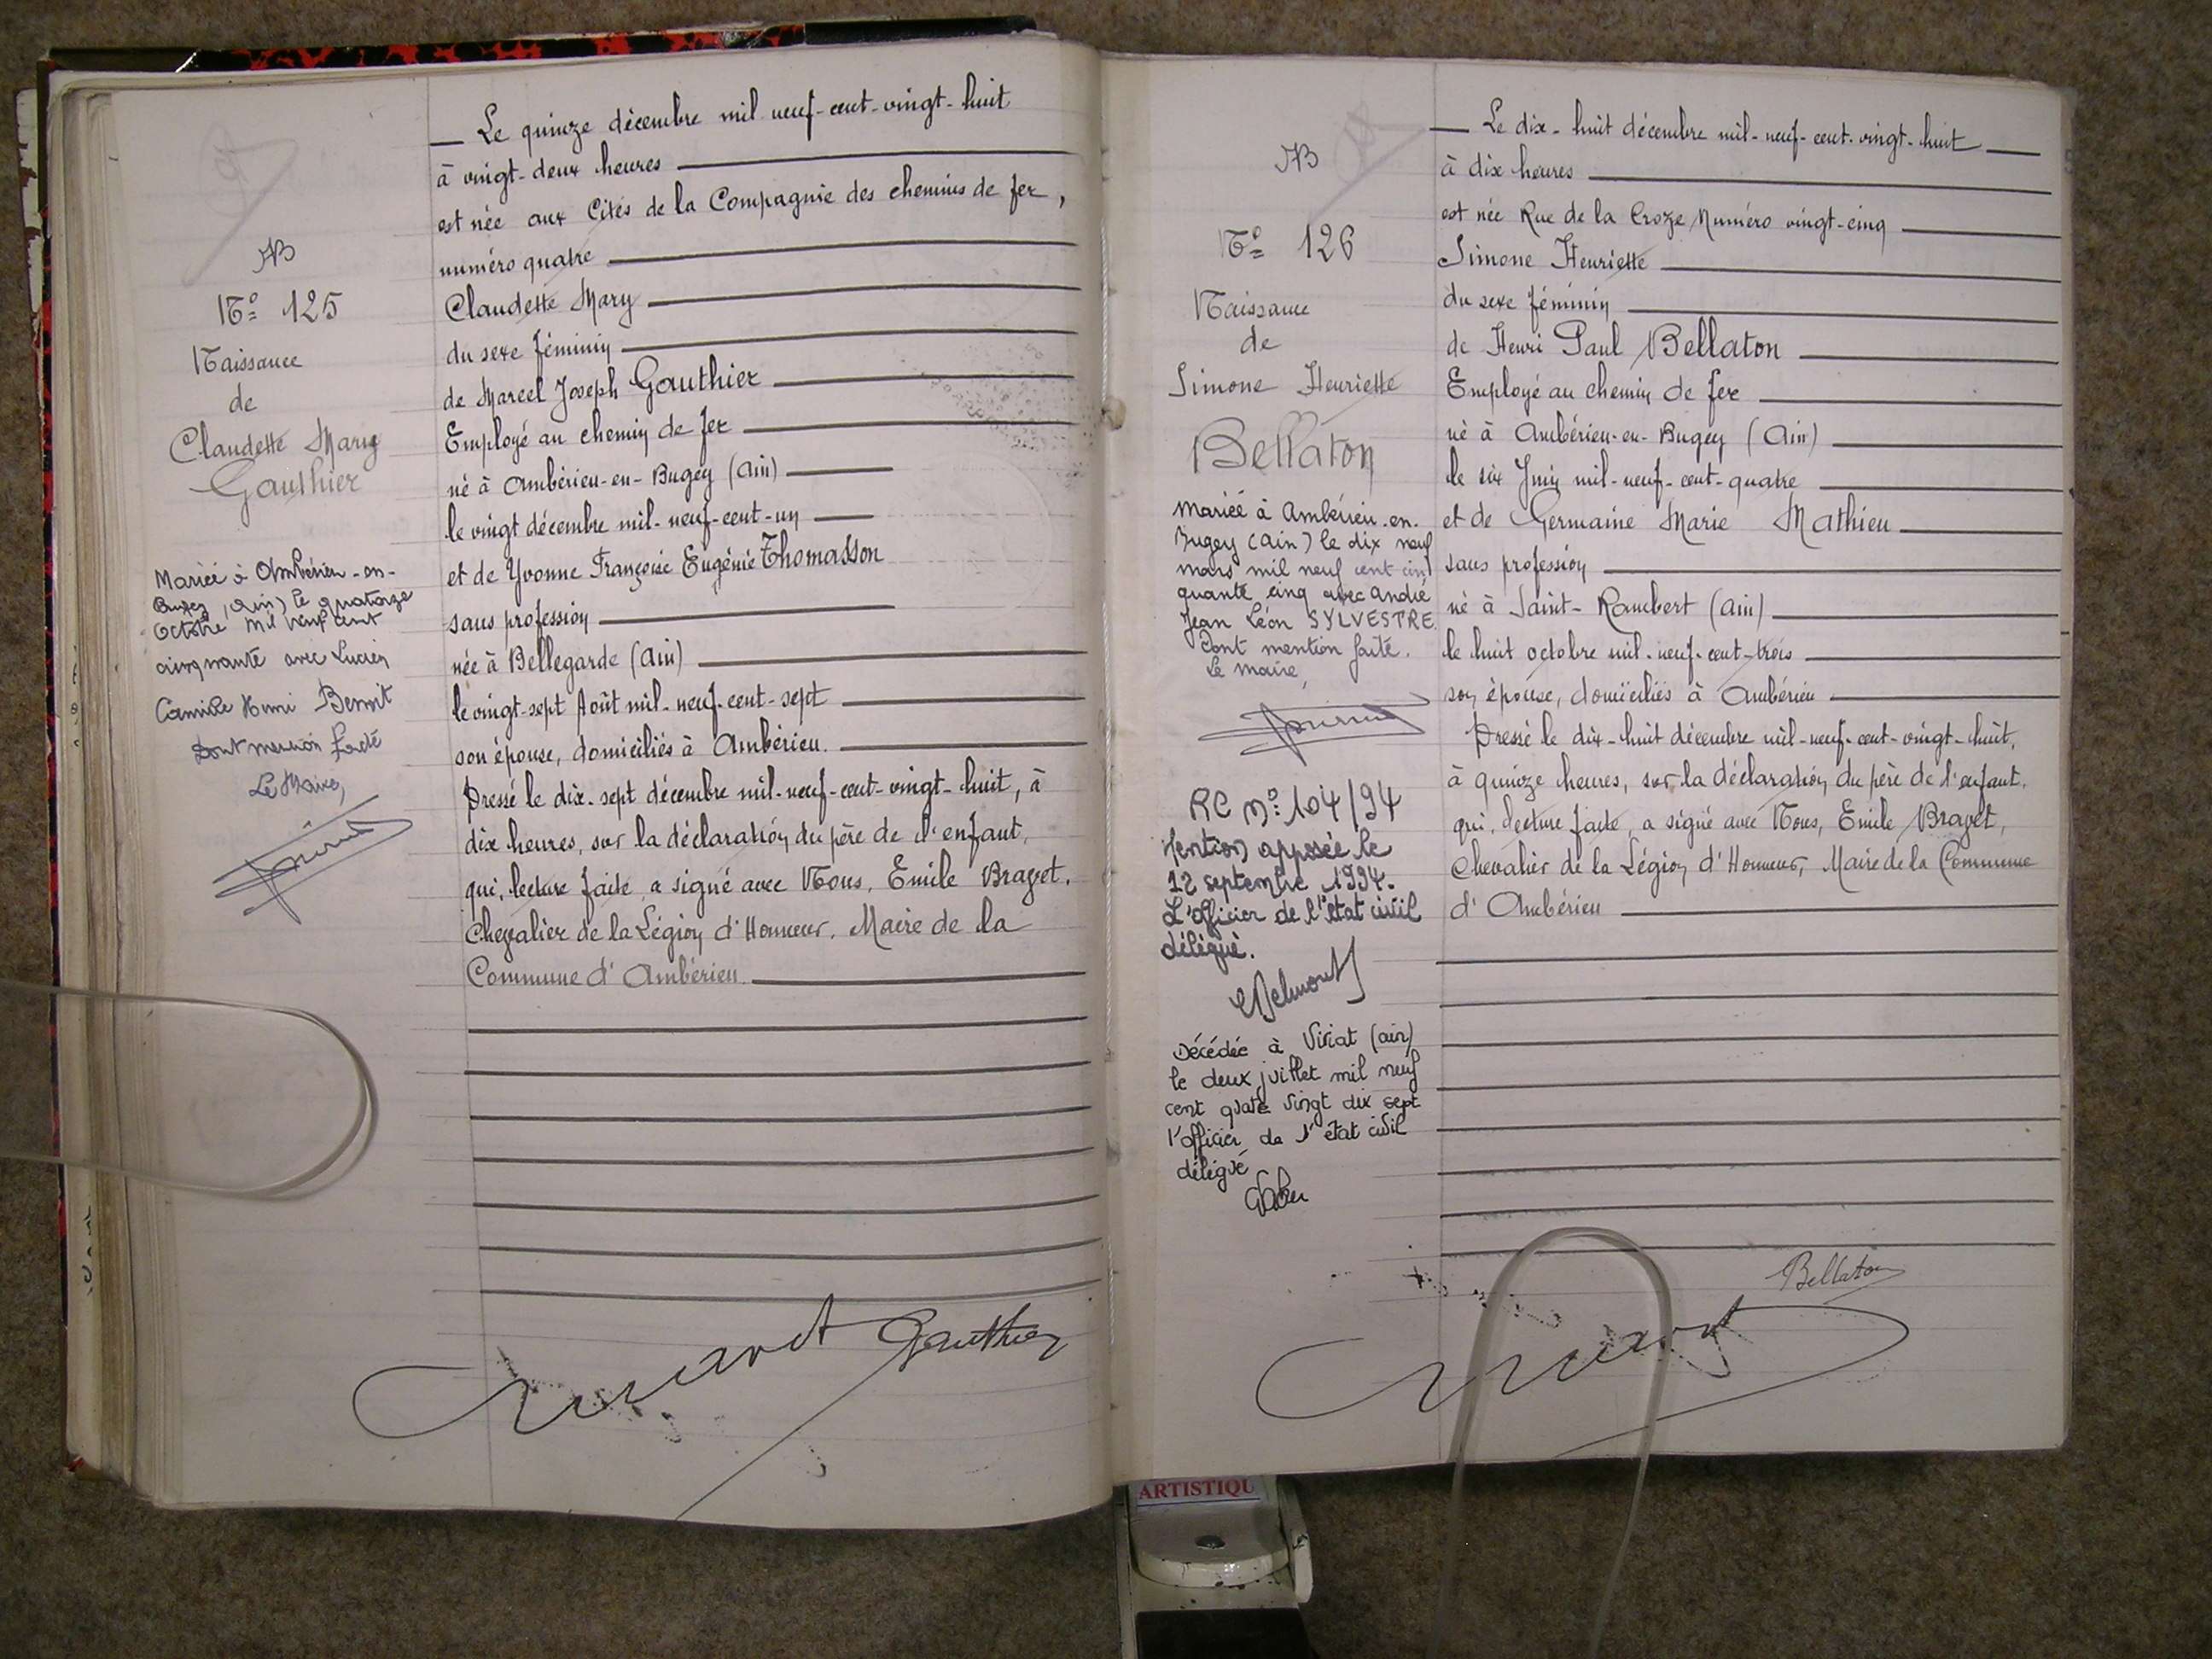 AB
N° 125
Naissance
de
Claudette Mary
Gauthier
Mariée à Ambérieu-en-
Bugey (Ain) le quatorze
Octobre mil neuf cent
cinquante avec Lucien
Camille Henri Benoit
Dont mention faite
Le Maire,
— Le quinze décembre mil neuf-cent-vingt-huit
à vingt-deux heures
est née aux Cités de la Compagnie des chemins de fer,
numéro quatre
Claudette Mary
du sexe féminin
de Marcel Joseph Gauthier
Employé au chemin de fer
né à Ambérieu-en-Bugey (Ain)
le vingt décembre mil-neuf-cent-un
et de Yvonne Françoise Eugénie Thomasson
sans profession
née à Bellegarde (Ain)
le vingt-sept Août mil-neuf-cent-sept
son épouse, domiciliés à Ambérieu.
Dressé le dix-sept décembre mil-neuf-cent-vingt-huit, à
dix heures, sur la déclaration du père de l'enfant,
qui, lecture faite, a signé avec Nous, Emile Bravet,
Chevalier de la Légion d'Honneur, Maire de la
Commune d'Ambérieu.
Gauthier
AB
N° 126
Naissance
de
Simone Henriette
Bellaton
Mariée à Ambérieu-en-
Bugey (Ain) le dix neuf
mars mil neuf cent cin
quante cinq avec André
Jean Léon SYLVESTRE
Dont mention faite.
Le maire,
RC N°: 104/94
Mention apposée le
12 septembre 1994.
L'officier de l'état civil
délégué.
Décédée à Viriat (ain)
le deux juillet mil neuf
cent quatre vingt dix sept
l'officier de l'état civil
délégué
— Le dix-huit décembre mil-neuf-cent-vingt-huit
à dix heures
est née Rue de la Croze, Numéro vingt-cinq
Simone Henriette
du sexe féminin
de Henri Paul Bellaton
Employé au chemin de fer
né à Ambérieu-en-Bugey (Ain)
le six Juin mil-neuf-cent-quatre
et de Germaine Marie Mathieu
sans profession
né à Saint-Rambert (Ain)
le huit octobre mil-neuf-cent-trois
son épouse, domiciliés à Ambérieu
Dressé le dix-huit décembre mil-neuf-cent-vingt-huit,
à quinze heures, sur la déclaration du père de l'enfant,
qui, lecture faite, a signé avec Nous, Emile Bravet,
Chevalier de la Légion d'Honneur, Maire de la Commune
d'Ambérieu
Bellaton
ARTISTIQU